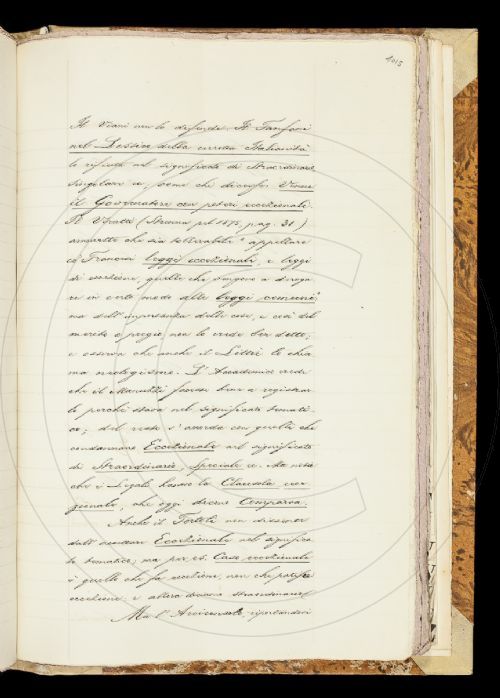 1015
Il Viani non lo difende. Il Fanfani
nel Lessico della corrotta Italianità
lo rifiuta nel significato di Straordinario
singolare ec, come chi dicesse: Venne
il Governatore con poteri eccezionali.
Il (Strenna pel 1875, pag. 31)
ammette che sia tollerabile "appellare
co' Francesi leggi eccezionali, o leggi
di eccezione, quelle che vengono a deroga
re in certo modo alle leggi comuni",
ma dell'importanza delle cose, e così del
merito o pregio, non lo crede ben detto;
e osserva che anche il Littré lo chia
ma neologismo. L'Accademico crede
che il Manuzzi facesse bene a registrar
lo perchè stava nel significato tematico
co; del resto s'accorda con quelli che
condannano Eccezionale nel significato
di Straordinario, Speciale ec. Ma nota
che i Legali hanno la Clausola ecce
zionale, che oggi dicono Comparsa.
Anche il Tortoli non dissente
dall'accettare Eccezionale nel significa
to tematico; ma per es. Caso eccezionale
è quello che fa eccezione, non che patisce
eccezione; e allora diremo straordinario.
Ma l'Arciconsolo, riportandosi